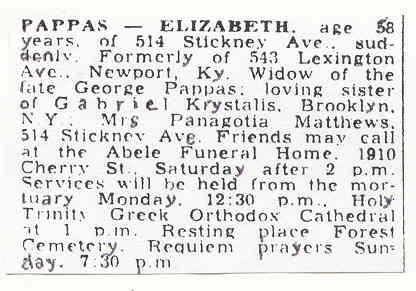 PAPPAS — ELIZABETH, age 58
years, of 514 Stickney Ave., sud-
denly. Formerly of 543 Lexington
Ave., Newport, Ky. Widow of the
late George Pappas; loving sister
of Gabriel Krystalis, Brooklyn,
N.Y.; Mrs Panagotia Matthews,
514 Stickney Ave. Friends may call
at the Abele Funeral Home, 1910
Cherry St., Saturday after 2 p.m.
Services will be held from the mor-
tuary Monday, 12:30 p.m., Holy
Trinity Greek Orthodox Cathedral
at 1 p.m. Resting place Forest
Cemetery. Requiem prayers Sun-
day, 7:30 p.m